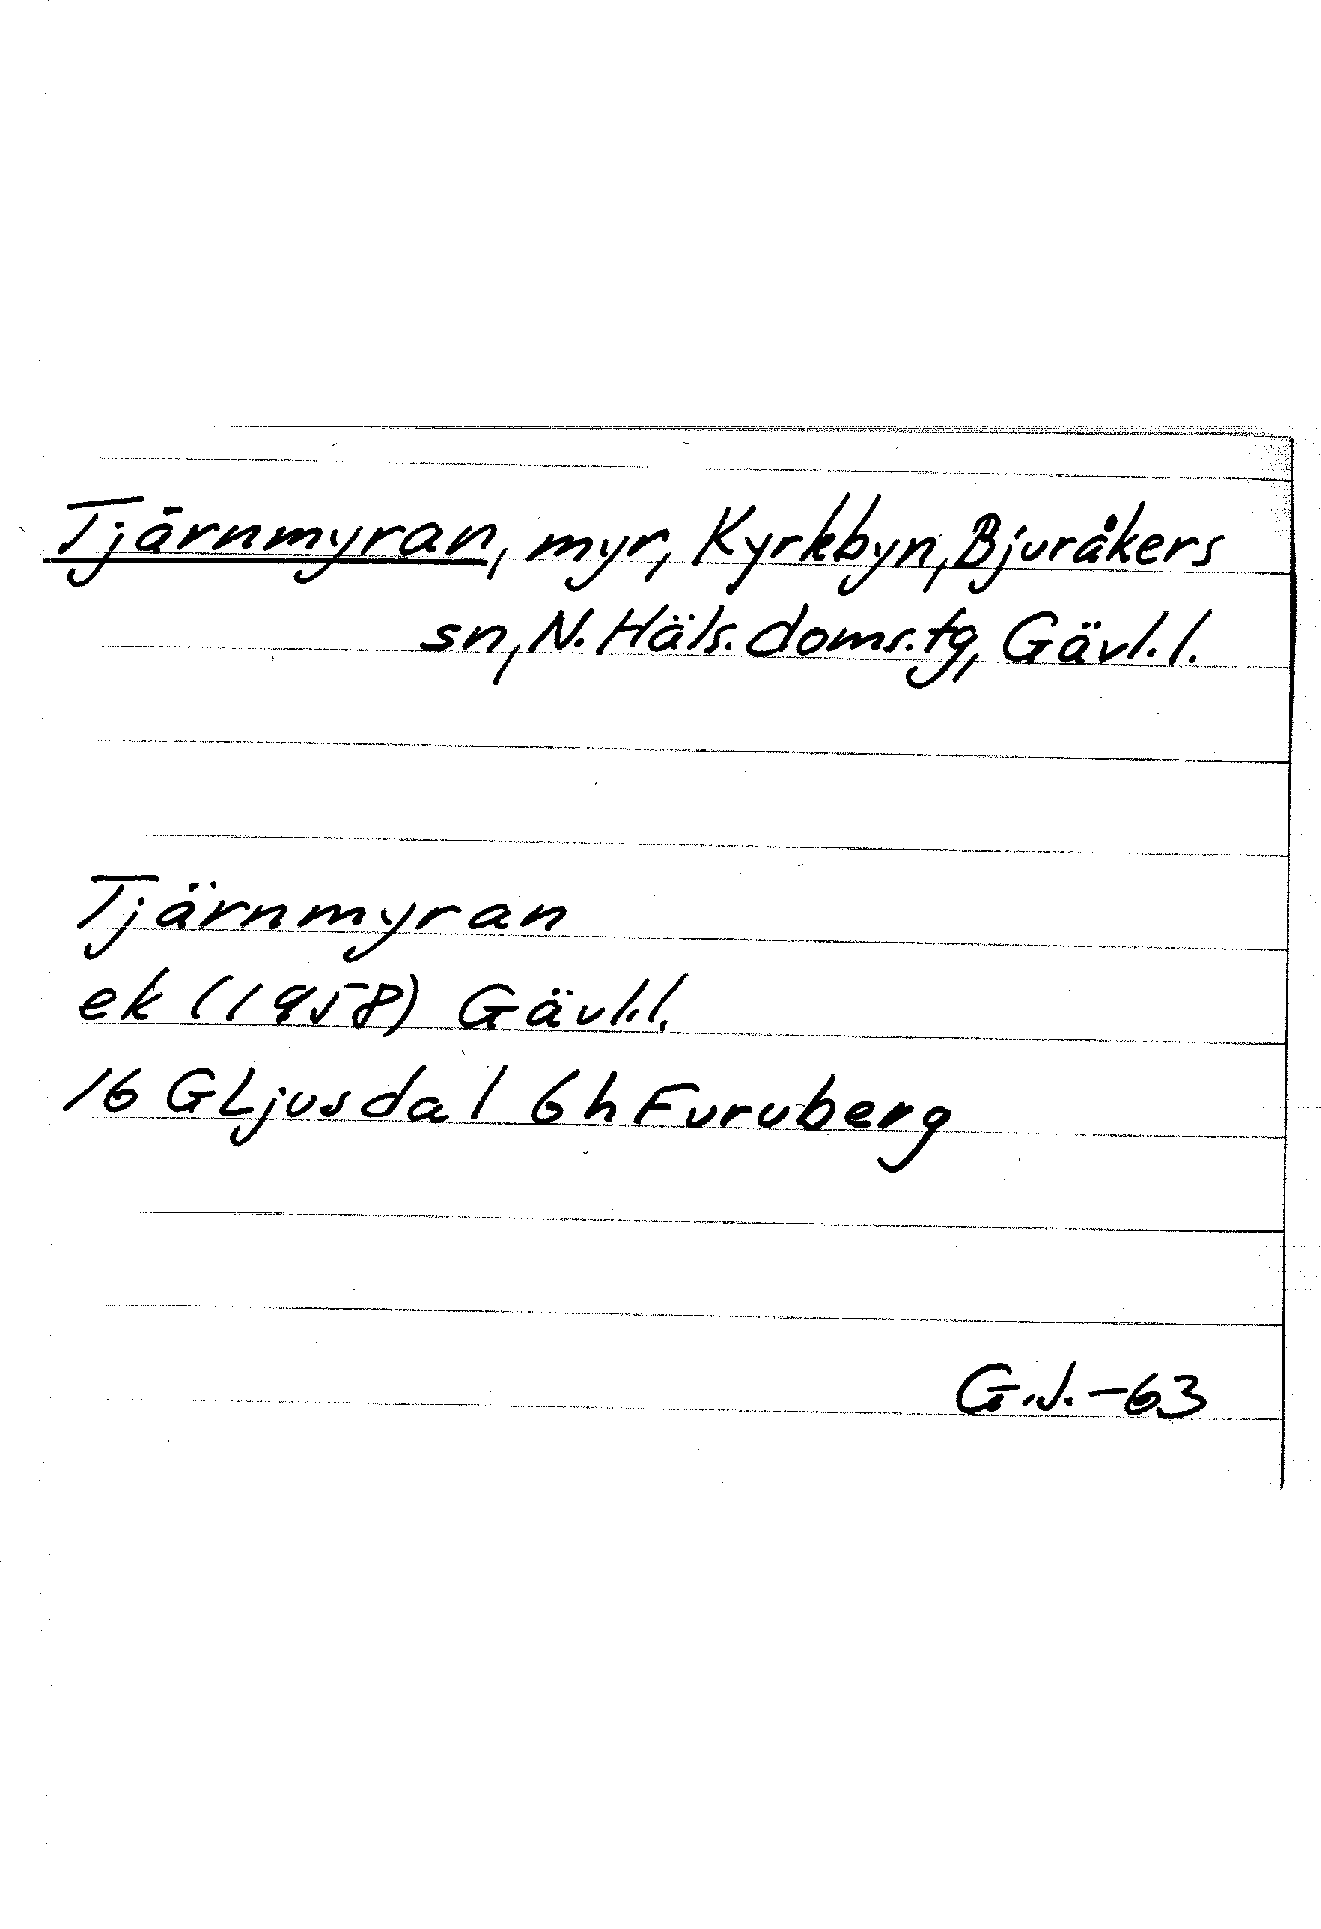 Tjärnmyran, myr, Kyrkbyn, Bjuråkers
sn, N. Häls. doms. tg, Gävl. l.
Tjärnmyran
ek (1958) Gävl. l.
16 G Ljusdal 6h Furuberg
G.J. -63